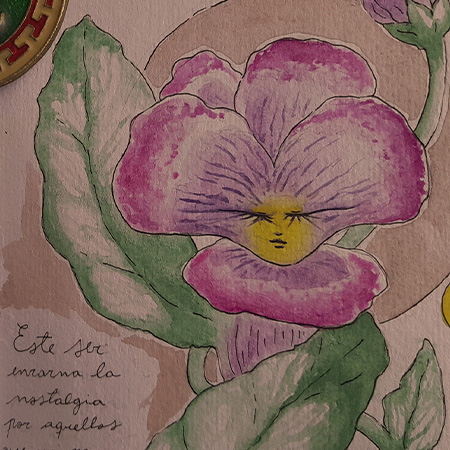 Este ser
encarna la
nostalgia
por aquellos